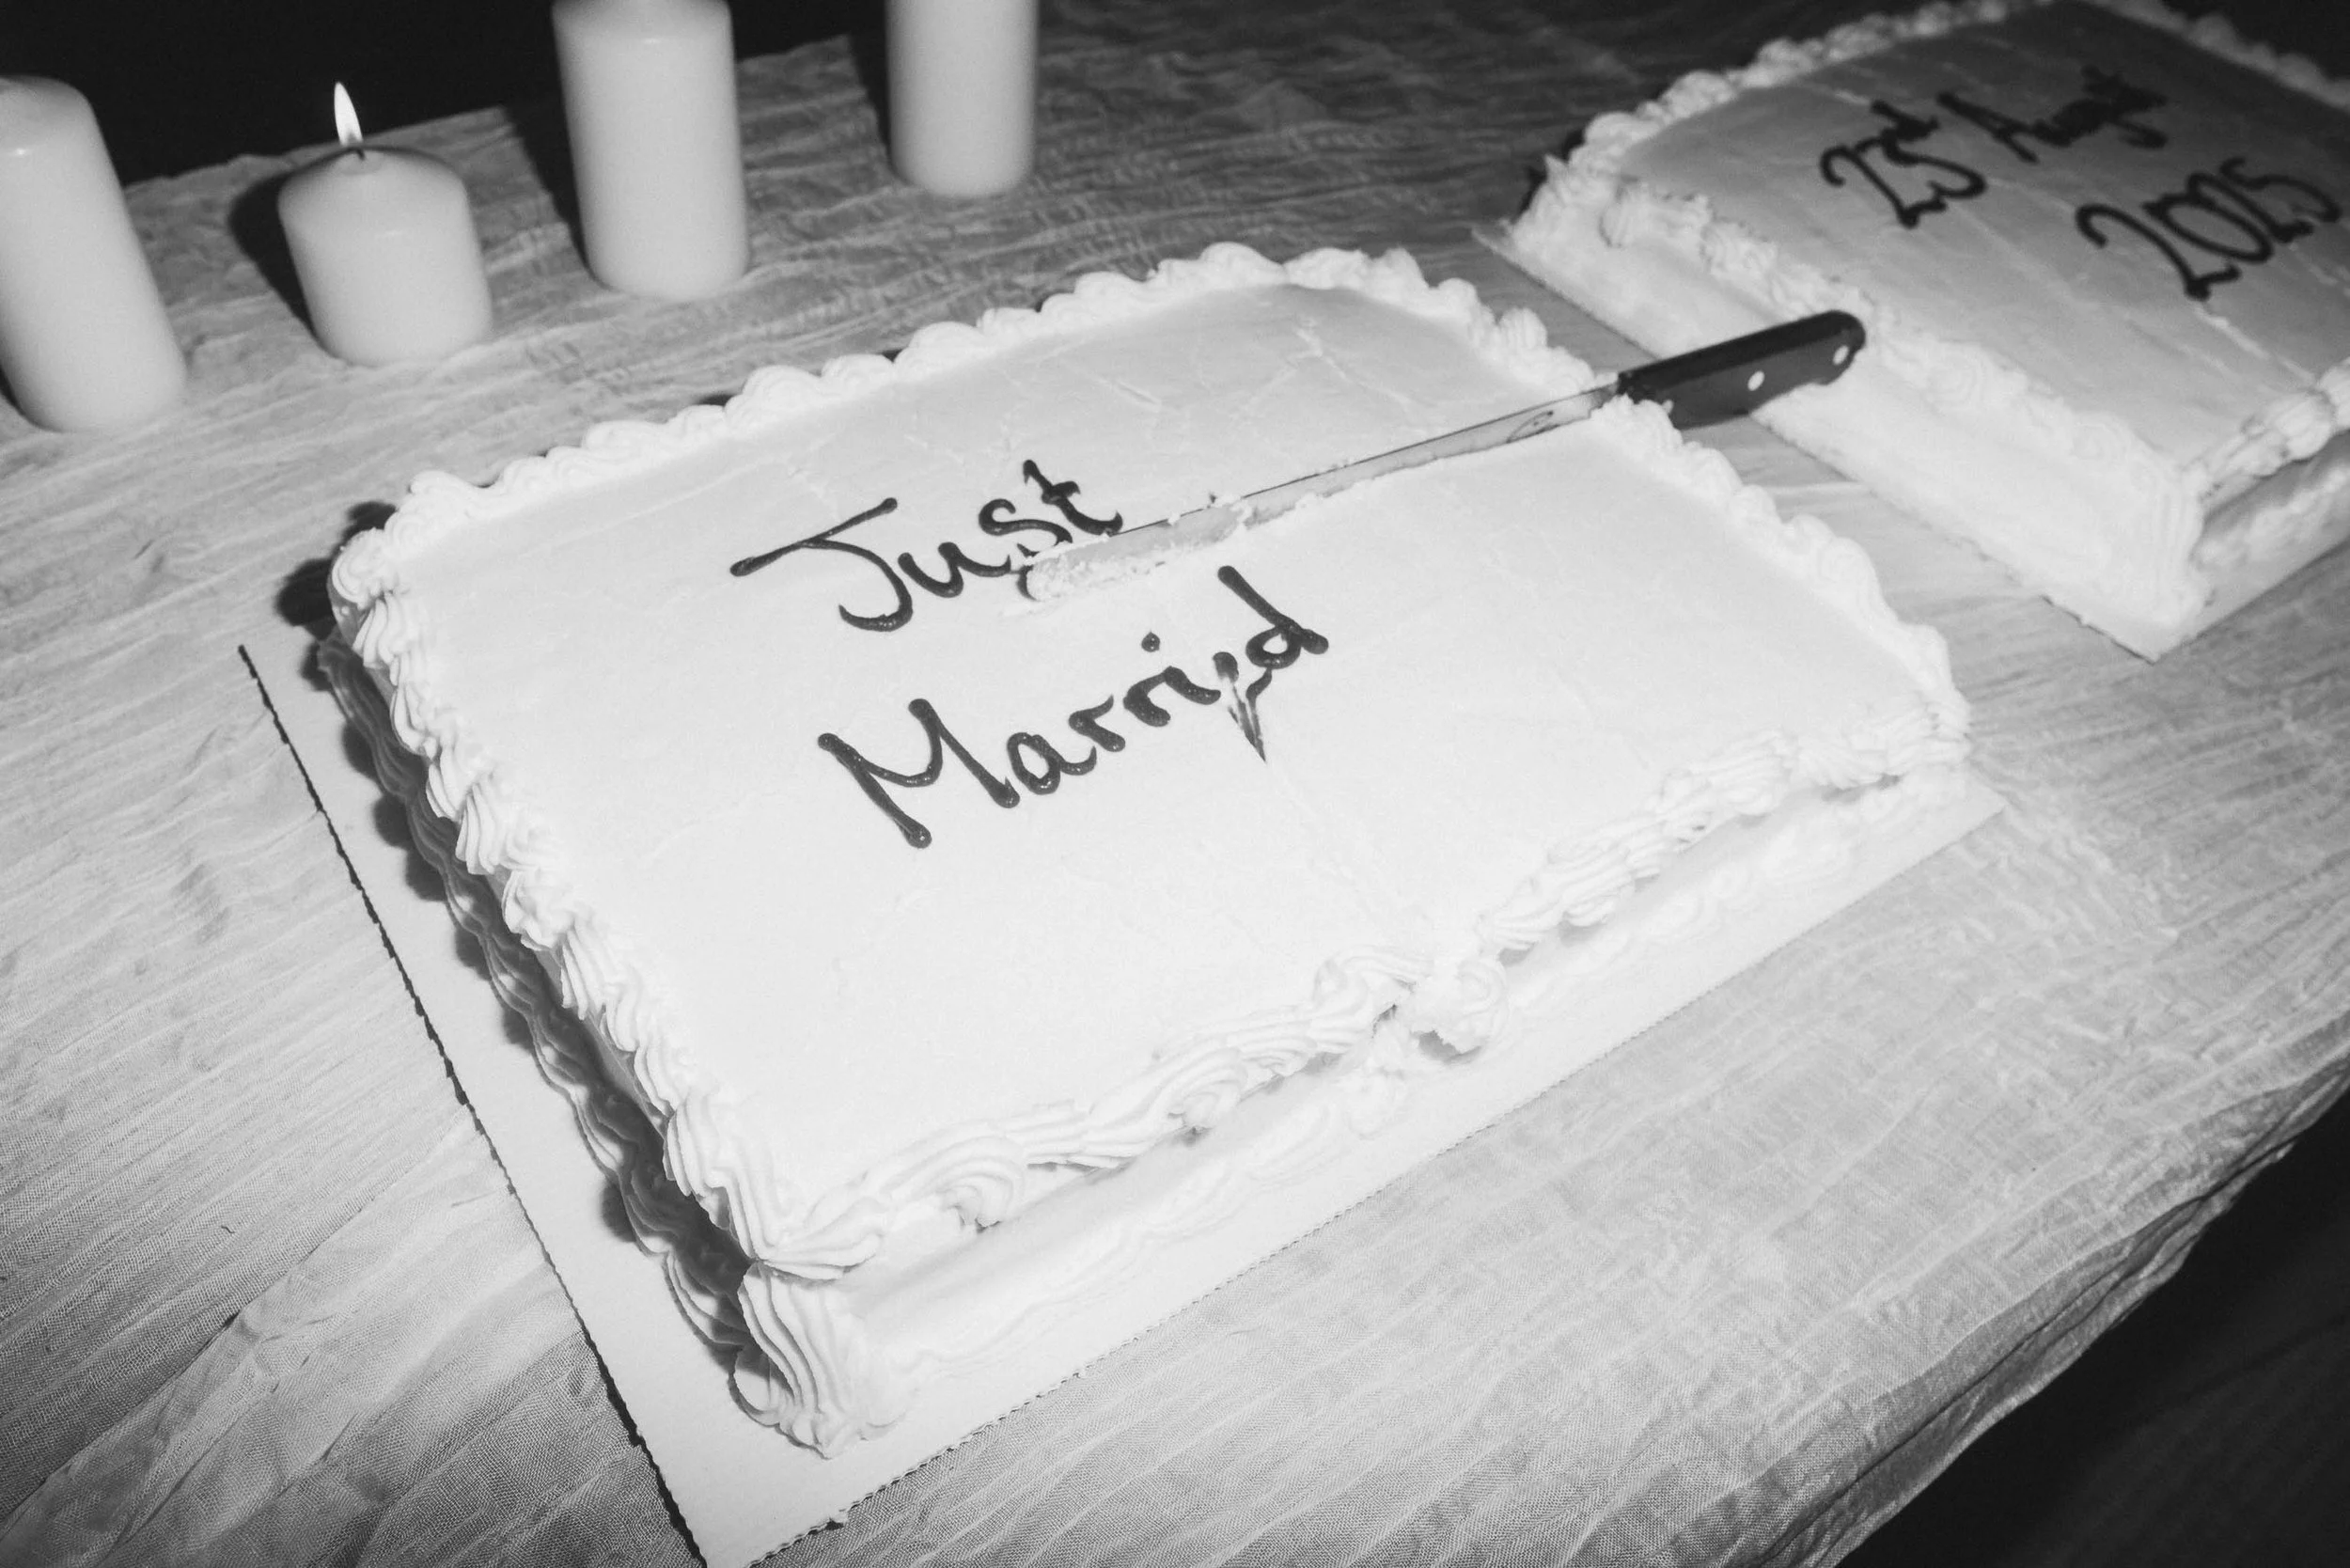 Just
Married
23rd August
2025